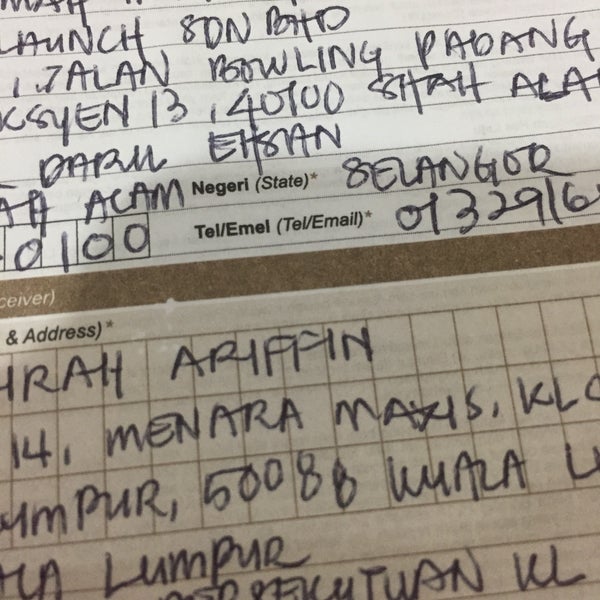 LAUNCH SDN BHD
1, JALAN BOWLING PADANG
KSYEN 13, 40100 SHAH ALA
DARUL EHSAN
AH ALAM Negeri (State)* SELANGOR
0100 Tel/Emel (Tel/Email)* 0132916
ceiver)
& Address)*
IRAH ARIFFIN
14, MENARA MAXIS, KLC
UMPUR, 50088 KUALA L
LA LUMPUR
PERSEKUTUAN KL